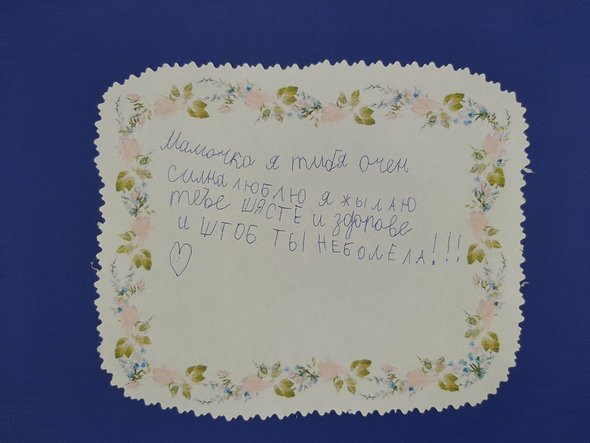 Мамочка я тибя очен
силна люблю я жылаю
тебе шясте и здорове
и штоб ты неболела!!!